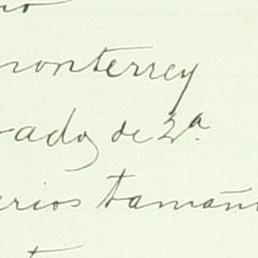 no
monterrey
ados de 2ª
arios tamañ